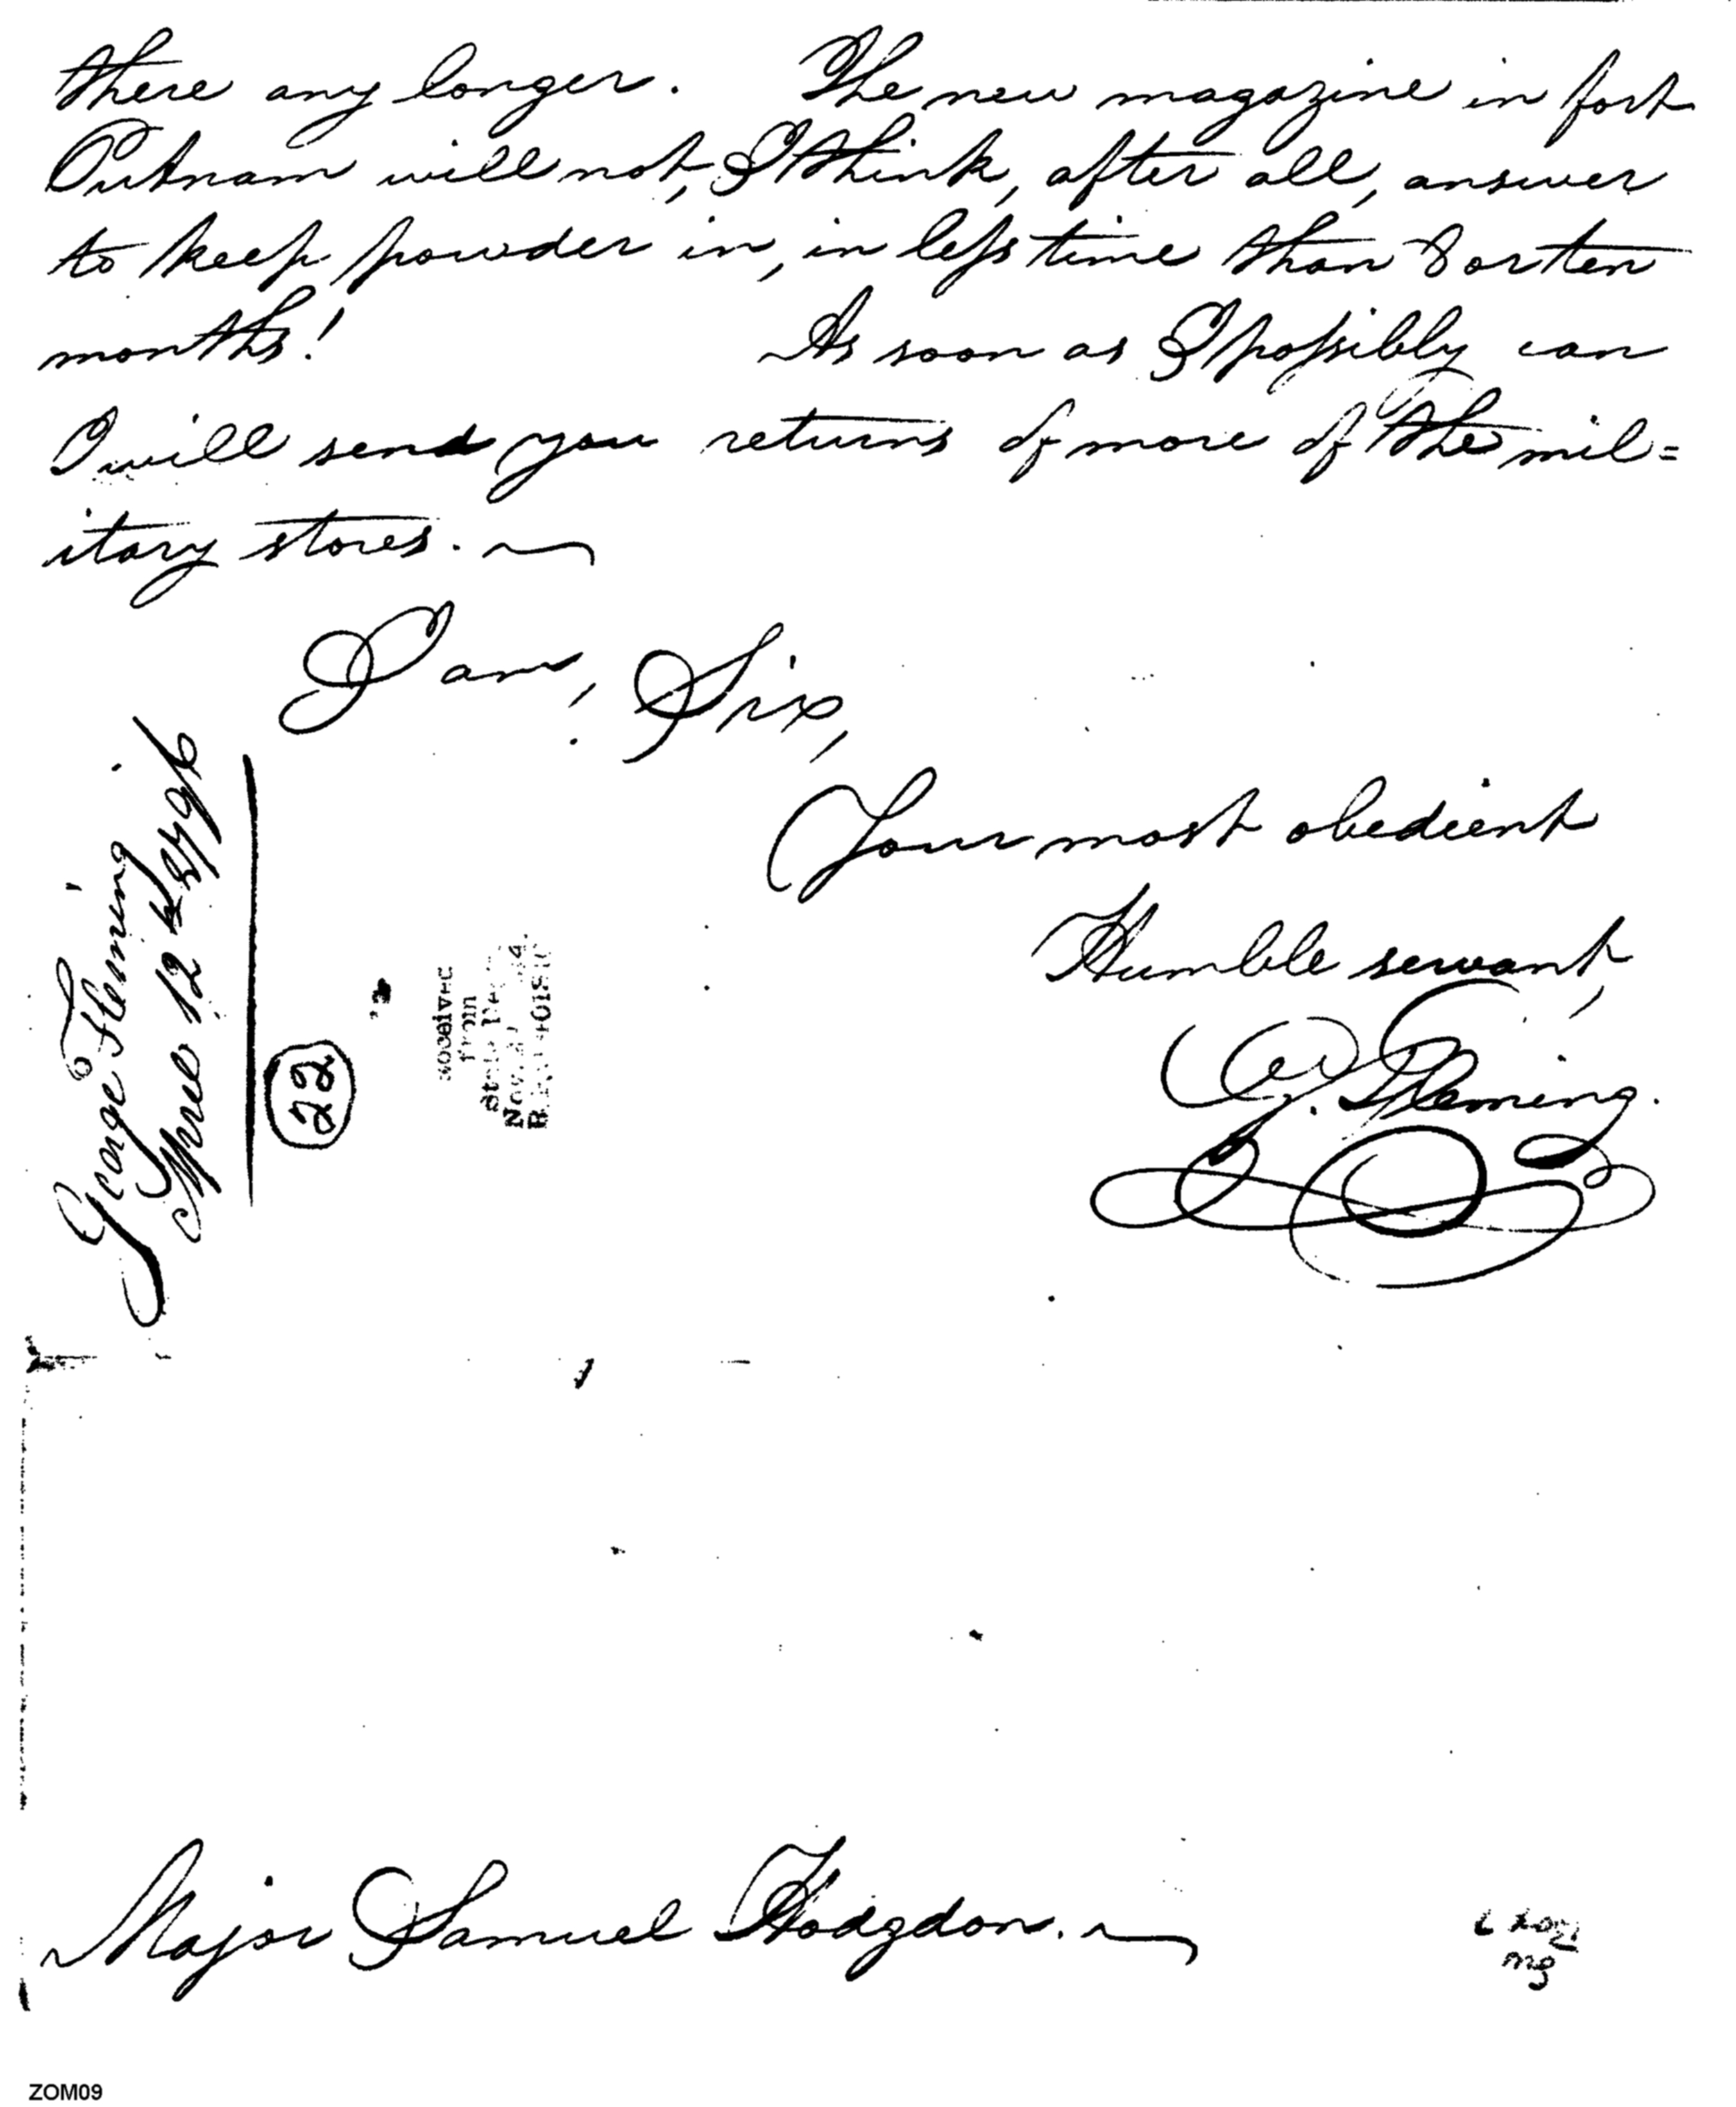 there any longer. The new magazine in fort
Putnam will not, I think, after all, answer
to keep powder in, in leſs time than 8 or ten
months! As soon as I poſsibly can
I will send you returns of more of the mil=
itary stores. ~
I am, Sir,
Your most obedient
Humble servant,
G. Fleming.
George Fleming
April 12
22
Received
from
Major Samuel Hodgdon. ~
ZOM09